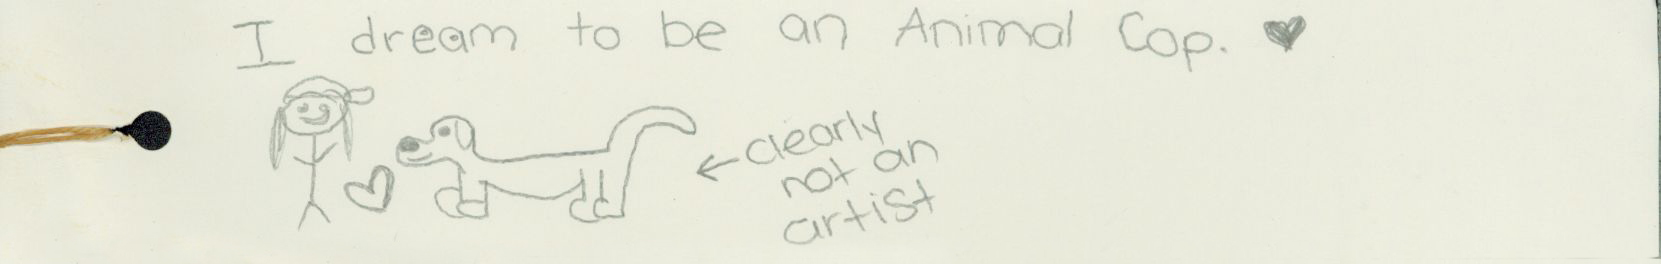 I dream to be an Animal Cop. ♥
← clearly
not an
artist